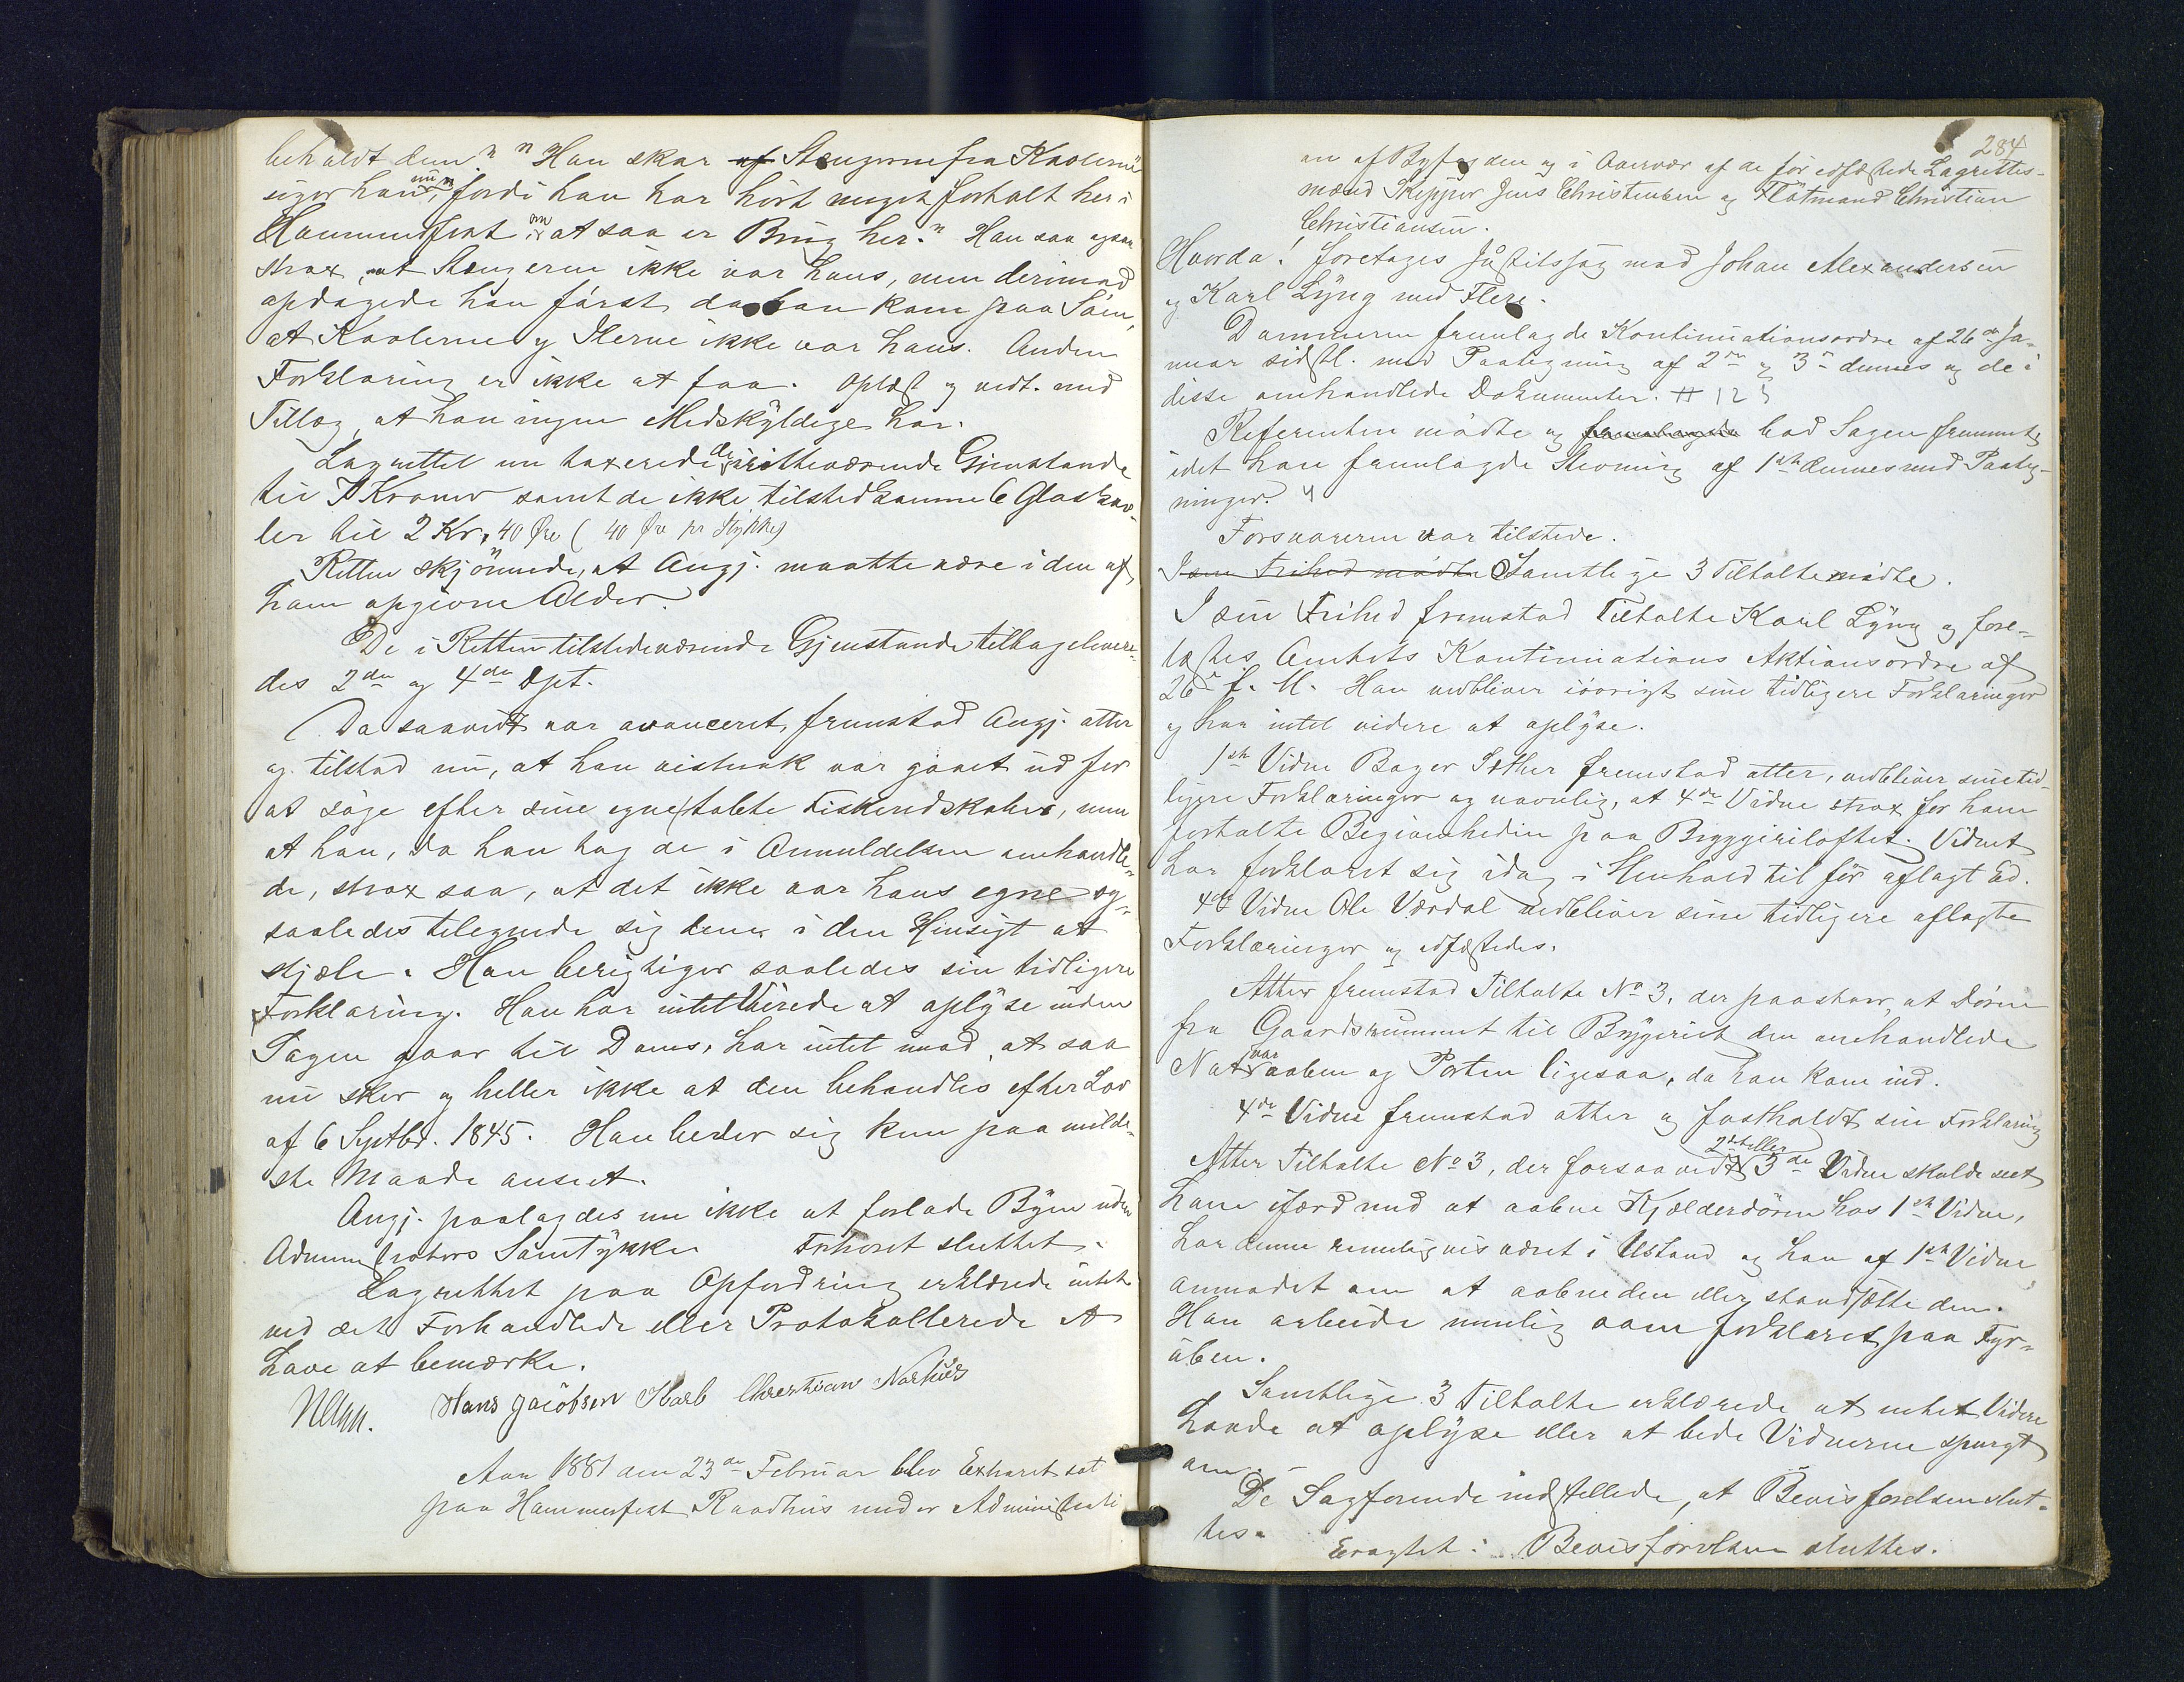 beholdt dem" "Han skar af Stengerne fra Kavlerne
siger han nu, "fordi han har hört noget fortalt her i
Hammerfest om at saa er Brug her." Han saa ogsaa
strax, at Stengerne ikke var hans, men derimod
opdagede han först da han kom paa Söen,
at Kavlerne og Ilerne ikke var hans. Anden
Forklaring er ikke at faa. Oplæst og vedt. med
Tillæg, at han ingen Medskyldige har.
Lagrettet nu taxerede de tilstedeværende Gjenstande
til Kroner samt de ikke tilstedkomne 6 Glaskav-
ler til 2 Kr. 40 Øre (40 Øre pr Stykke)
Retten skjönnede, at Angj. maatte være i den af
ham opgivne Alder.
De i Retten tilstedeværende Gjenstande tilbagelevere-
des 2den og 4de Dpt.
Da saavidt var avanceret fremstod Angj. atter
og tilstod nu, at han vistnok var gaaet ud for
at söge efter sine egne tabte Fiskeredskaber, men
at han, da han tog de i Anmeldelsen omhandle-
de, strax saa, at det ikke var hans egne og
saaledes tilegnede sig dem i den Hensigt at
stjæle. Han berigtiger saaledes sin tidligere
Forklaring. Han har intet Videre at oplyse inden
Sagen gaar til Doms, har intet imod, at saa
nu sker og heller ikke at den behandles efter Lov
af 6 Septbr. 1845. Han beder sig kun paa milde-
ste Maade anseet.
Angj. paalagdes nu ikke at forlade Byen uden
Administrators Samtykke Forhöret sluttet.
Lagrettet paa Opfordring erklærede intet
ved det Forhandlede eller Protokollerede at
have at bemærke.
Hans Jacobsen Harb Christian Norhüs
Aar 1881 den 23de Februar blev Extraret sat
paa Hammerfest Raadhus under Administrati
284
on af Byfogden og i Overvær af de för edfæstede Lagrettes-
mænd Skipper Jens Christensen og Flötmand Christian
Christiansen.
Hvorda! foretoges Justitssag mod Johan Alexandersen
og Karl Lyng med Flere.
Dommeren fremlagde Kontinuationsordre af 26de Ja-
nuar sidstl. med Paategning af 2den og 3die dennes og de i
disse omhandlede Dokumenter. # 12
Referenten mödte og fremlagde bad Sagen fremmet
idet han fremlagde Stevning af 1ste dennes med Paateg-
ninger.
Forsvareren var tilstede.
I sin Frihed mödte Samtlige 3 Tiltalte mödte.
I sin Frihed fremstod Tiltalte Karl Lyng og fore-
læstes Amtets Kontinuations Aktionsordre af
26de f. M. Han vedbliver iövrigt sine tidligere Forklaringer
og har intet videre at oplyse.
1ste Vidne Bager Ihler fremstod atter, vedbliver sine tid-
ligere Forklaringer og navnlig, at 4de Vidne strax for ham
fortalte Begivenheden paa Bryggeriloftet. Vidnet
har forklaret sig idag i Henhold til för aflagt Ed.
4de Vidne Ole Værdal vedbliver sine tidligere aflagte
Forklaringer og edfæstedes.
Atter fremstod Tiltalte No 3, der paastaar, at Dören
fra Gaardsrummet til Bryggeriet den omhandlede
Nat var aaben og Porten ligesaa, da han kom ind.
4de Vidne fremstod atter og fastholdt sin Forklaring
Atter Tiltalte No 3, der forsaavidt 2det eller 3die Vidne skulde seet
ham ifærd med at aabne Kjælderdören hos 1ste Vidne,
har denne rimeligvis været i Ustand og han af 1ste Vidne
anmodet om at aabne den eller istandsætte den.
Han arbeide nemlig som forklaret paa Fyr-
aben.
Samtlige 3 Tiltalte erklærede at intet Videre
havde at oplyse eller at bede Vidnerne spurgt
om. -
De Sagförende indstillede, at Bevisförelsen slut-
tes.
Eragtet: Bevisförelsen sluttes.